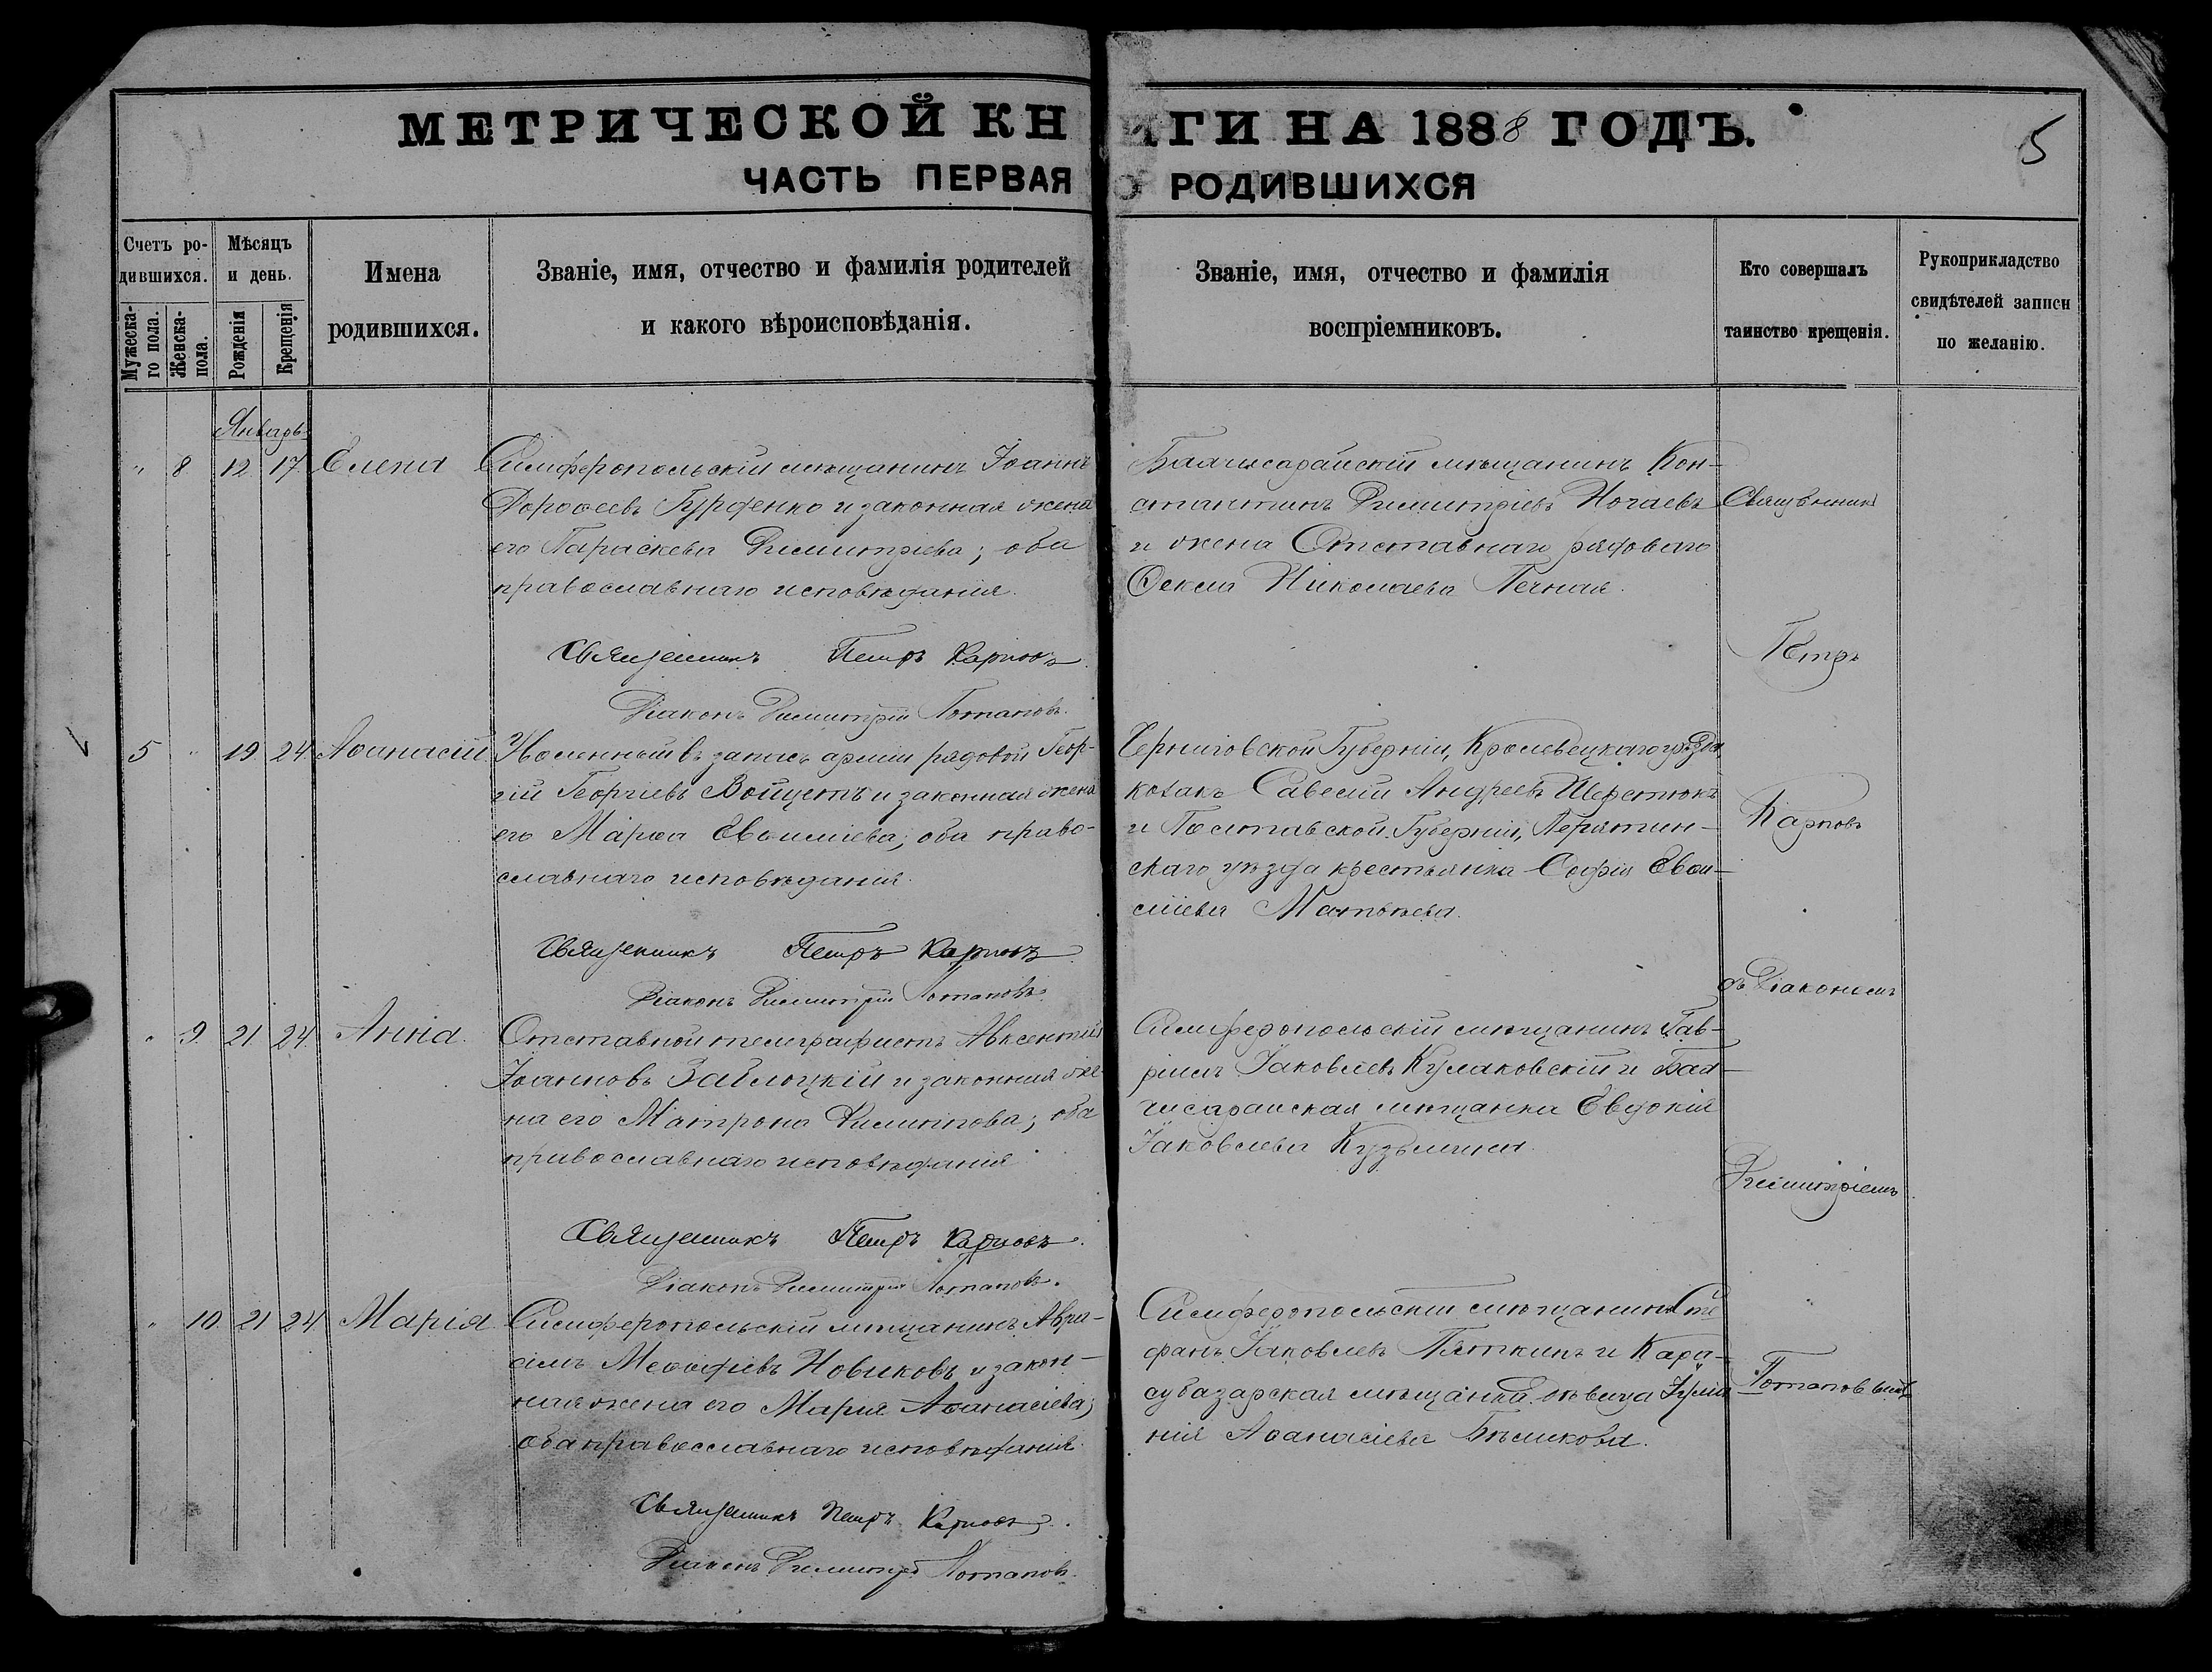 МЕТРИЧЕСКОЙ КНИГИ НА 1888 ГОДЪ.
5
ЧАСТЬ ПЕРВАЯ О РОДИВШИХСЯ
Счетъ ро-
дившихся.
Мужеска-
го пола.
Женска-
пола.
Мѣсяцъ
и день.
Рожденія
Крещенія
Имена
родившихся.
Званіе, имя, отчество и фамилія родителей
и какого вѣроисповѣданія.
Званіе, имя, отчество и фамилія
воспріемниковъ.
Кто совершалъ
таинство крещенія.
Рукоприкладство
свидѣтелей записи
по желанію.
Январь
" 8 12 17 Елена
Симферопольскій мѣщанинъ Іоаннъ
Дорофеевъ Гурденко и законная жена
его Параскева Димитріева; оба
православнаго исповѣданія.
Священникъ Петръ Карповъ
Діаконъ Димитрій Потаповъ.
Бахчисарайскій мѣщанинъ Кон-
стантинъ Димитріевъ Ногаевъ
и жена Отставнаго рядоваго
Ѳекла Николаева Печная.
5 " 19 24 Аѳанасій
Уволенный въ запасъ арміи рядовой Геор-
гій Георгіевъ Войцетъ и законная жена
его Марѳа Евѳиміева; оба право-
славнаго исповѣданія.
Священникъ Петръ Карповъ
Діаконъ Димитрій Потаповъ.
Черниговской Губерніи, Кролевецкаго уѣзда,
козакъ Савелій Андреевъ Шерстюкъ
и Полтавской Губерніи, Пирятин-
скаго уѣзда крестьянка Софія Евѳи-
міева Матвѣева.
" 9 21 24 Анна.
Отставной телеграфистъ Авксентій
Іоанновъ Заблоцкій и законная же-
на его Матрона Филиппова; оба
православнаго исповѣданія
Священникъ Петръ Карповъ.
Діаконъ Димитрій Потаповъ.
Симферопольскій мѣщанинъ Гав-
ріилъ Іаковлевъ Кулаковскій и Бах-
чисарайская мѣщанка Евдокія
Іаковлева Кузьмина.
" 10 21 24 Марія
Симферопольскій мѣщанинъ Авра-
амъ Меѳодіевъ Новиковъ и закон-
ная жена его Марія Аѳанасіева;
оба православнаго исповѣданія.
Священникъ Петръ Карповъ.
Діаконъ Димитрій Потаповъ.
Симферопольскій мѣщанинъ Сте
фанъ Іаковлевъ Пяткинъ и Кара-
субазарская мѣщанка дѣвица Іулiа
нія Аѳанасіева Бѣликова.
Священникъ
Петръ
Карповъ
съ Діакономъ
Димитріемъ
Потаповымъ